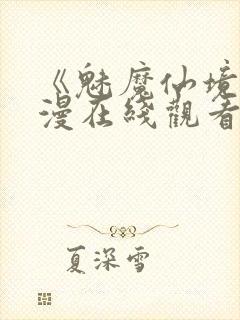 《魅魔仙境
漫在綫觀看
夏深雪